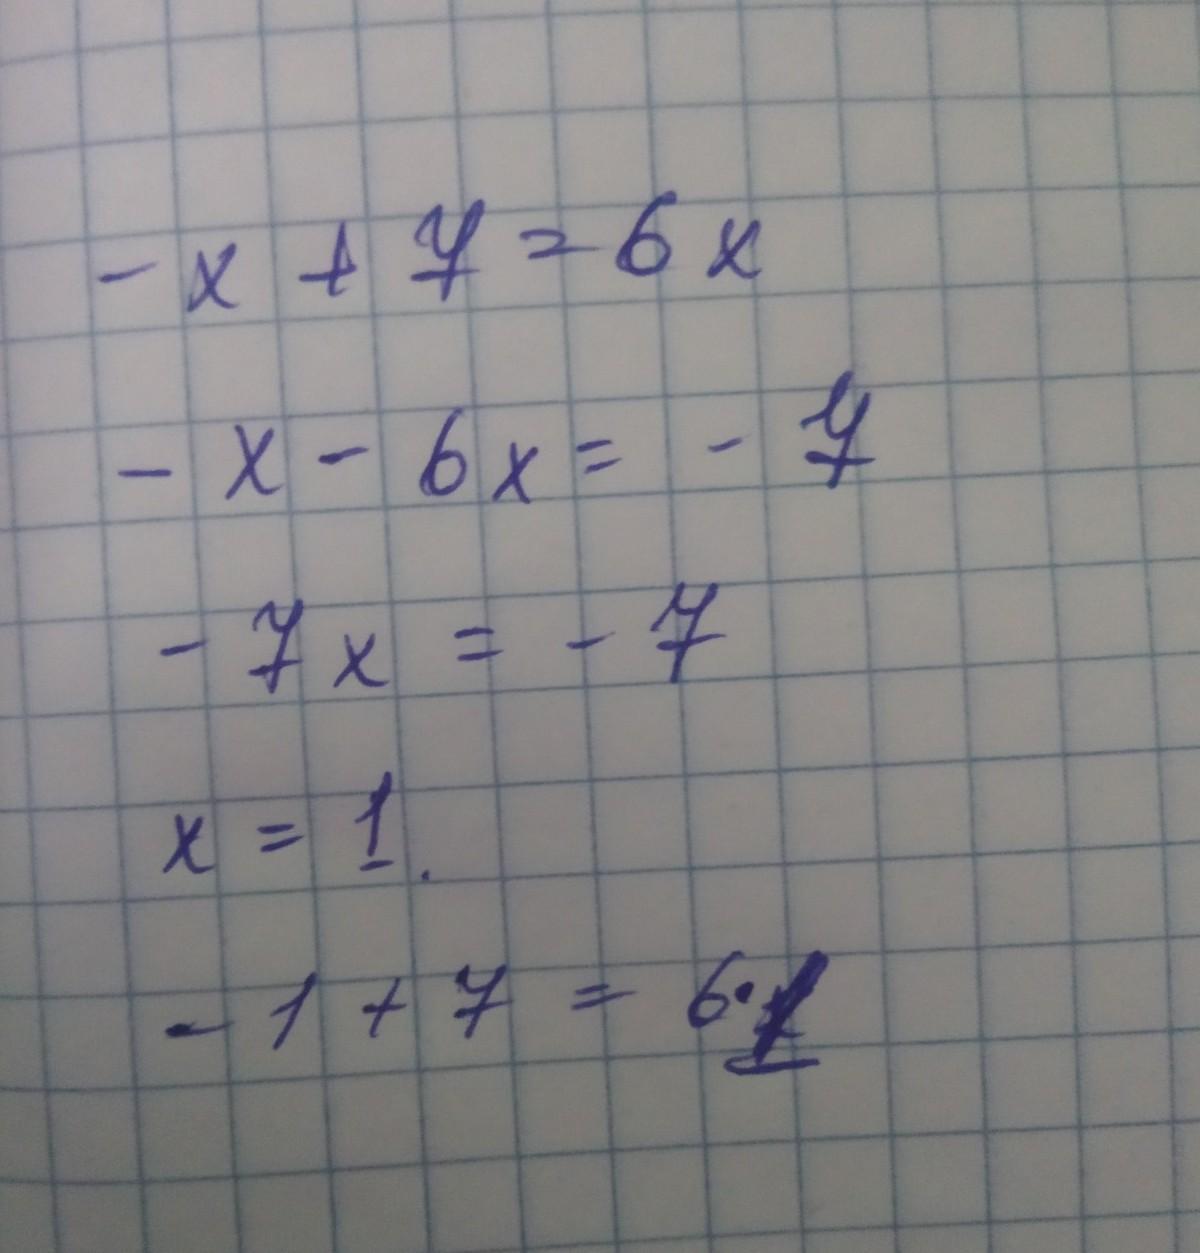 -x + 7 = 6x
-x - 6x = -7
-7x = -7
x = 1.
-1 + 7 = 6·1